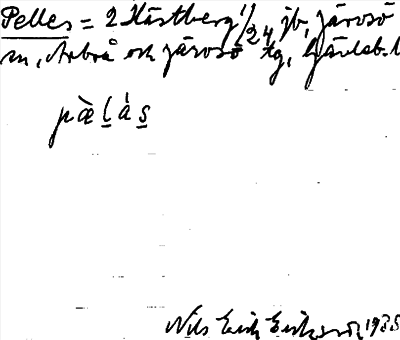 Pelles = 2 Hästberg 1/24 jb, Järvsö
sn, Arbrå och Järvsö tg, Gävleb. l
pæ̀l̠ȧs̠
Nils Erik Eriksson, 1935